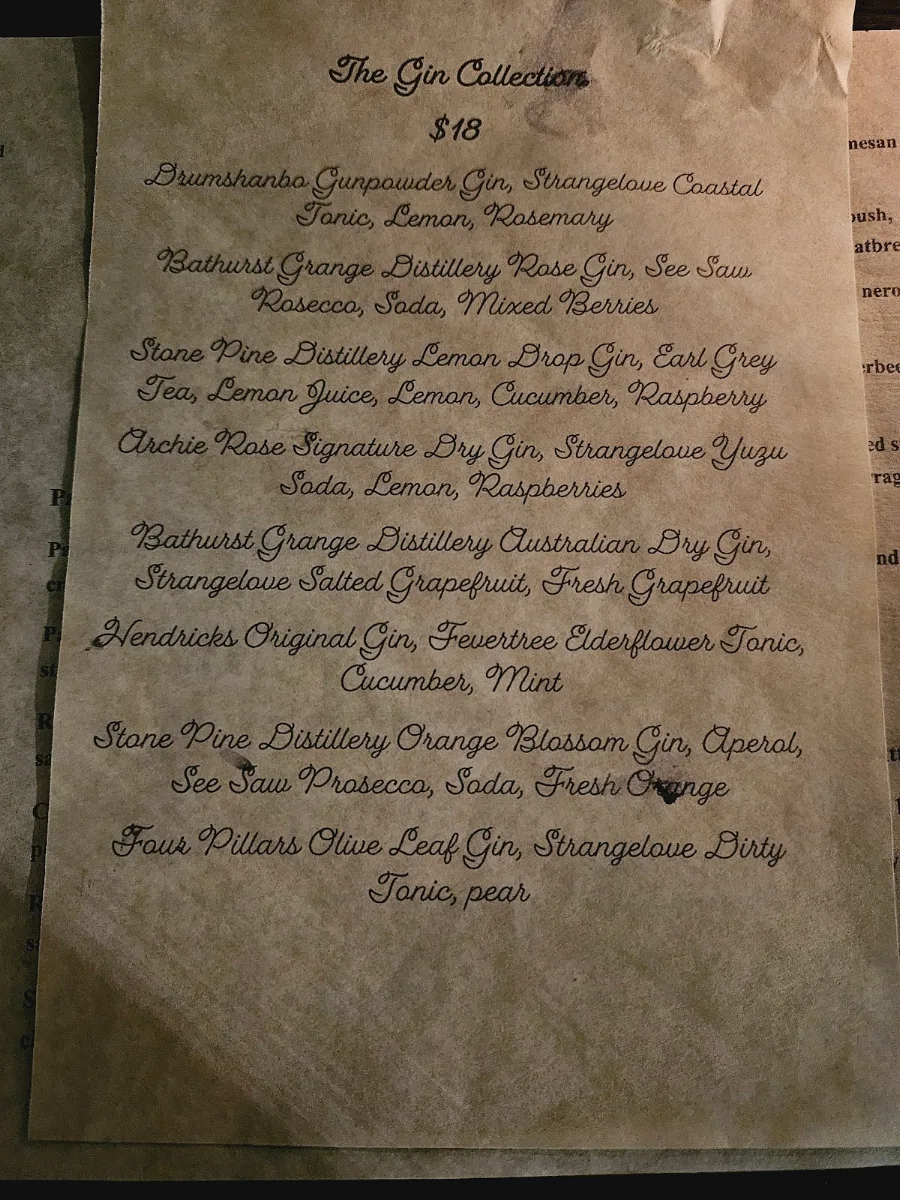 The Gin Collection
$18
Drumshanbo Gunpowder Gin, Strangelove Coastal
Tonic, Lemon, Rosemary
Bathurst Grange Distillery Rose Gin, See Saw
Rosecco, Soda, Mixed Berries
Stone Pine Distillery Lemon Drop Gin, Earl Grey
Tea, Lemon Juice, Lemon, Cucumber, Raspberry
Archie Rose Signature Dry Gin, Strangelove Yuzu
Soda, Lemon, Raspberries
Bathurst Grange Distillery Australian Dry Gin,
Strangelove Salted Grapefruit, Fresh Grapefruit
Hendricks Original Gin, Fevertree Elderflower Tonic,
Cucumber, Mint
Stone Pine Distillery Orange Blossom Gin, Aperol,
See Saw Prosecco, Soda, Fresh Orange
Four Pillars Olive Leaf Gin, Strangelove Dirty
Tonic, pear